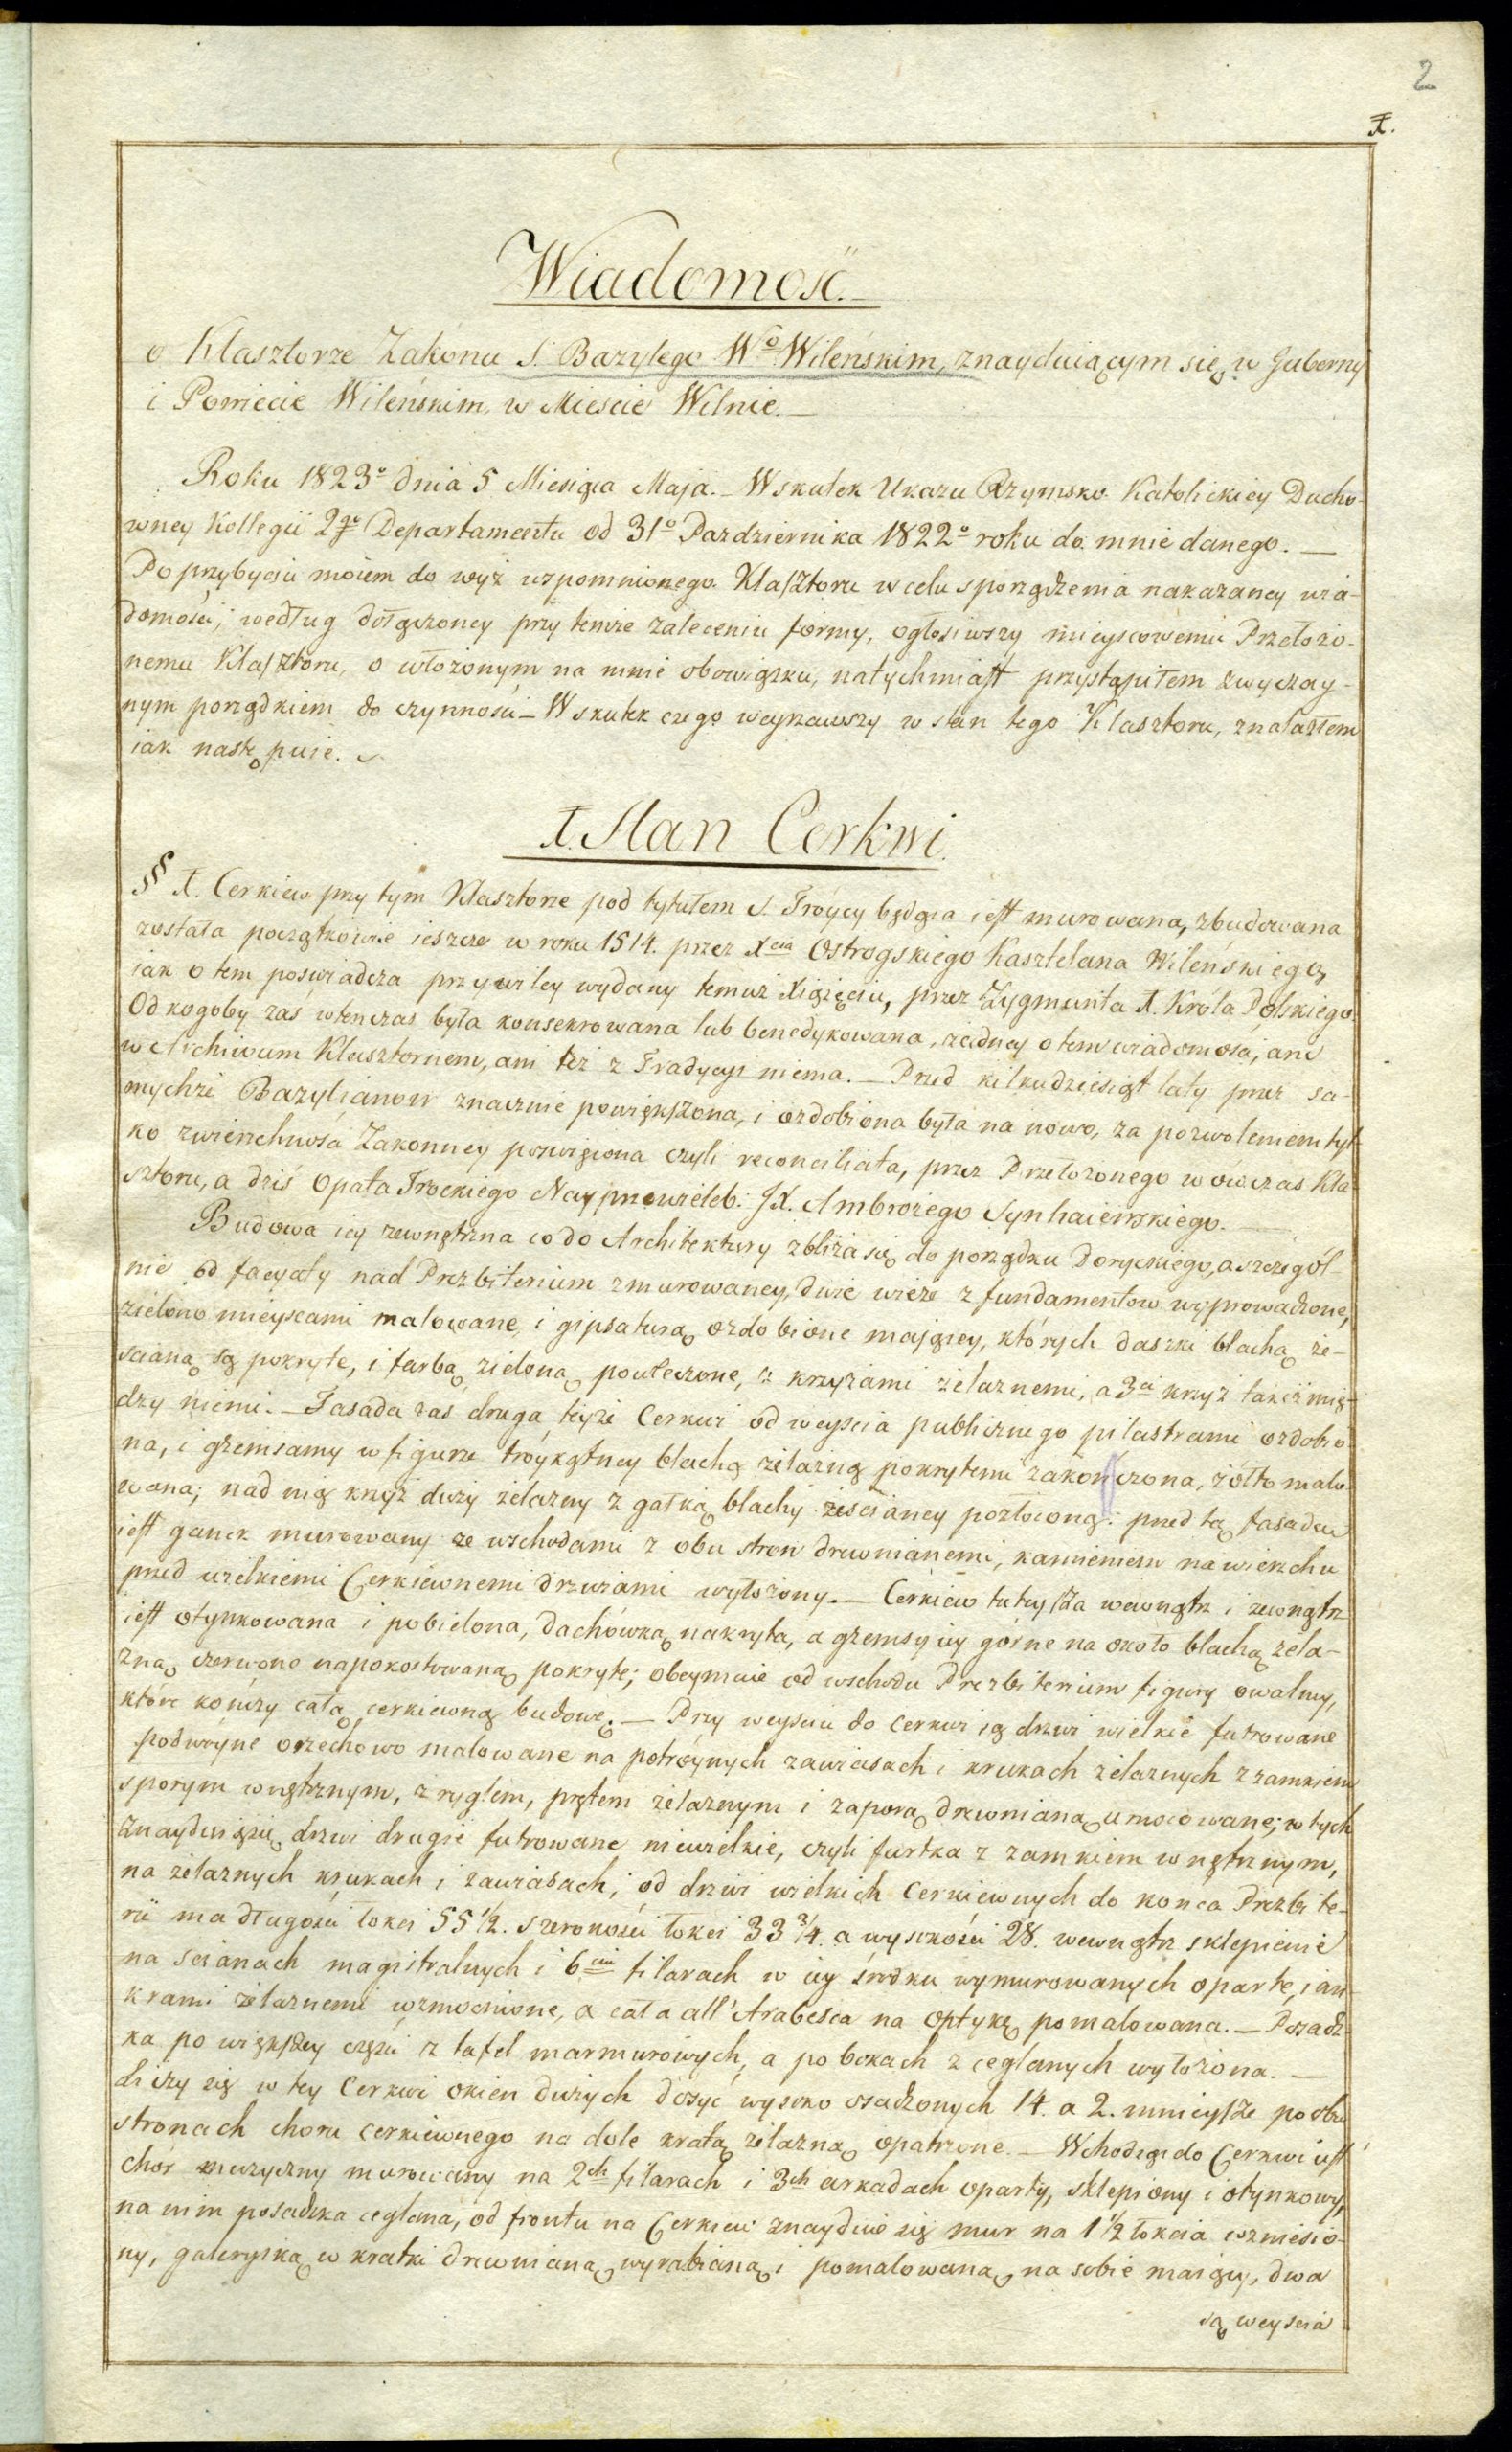 2
I.
Wiadomość.
o Klasztorze Zakonu S. Bazylego Wo Wileńskim, znayduiącym się w Guberny
i Powiecie Wileńskim, w Mieście Wilnie.—
Roku 1823o Dnia 5 Miesiąca Maja.— W skutek Ukazu Rzymsko Katolickiey Ducho-
wney Kollegii 2go Departamentu od 31o Pazdziernika 1822o roku do mnie danego.—
Po przybyciu moiem do wyż wspomnionego Klasztoru w celu sporządzenia nakazaney wia-
domości, według dołączoney przy temże zaleceniu formy, ogłosiwszy mieyscowemu Przełożo-
nemu Klasztoru, o włożonym na mnie obowiązku, natychmiast przystąpiłem zwyczay-
nym porządkiem do czynności— W skutek czego weyrzawszy w stan tego Klasztoru, znalazłem
iak następuie.
I. Stan Cerkwi.
§ I. Cerkiew przy tym Klasztorze pod tytułem S. Tróycy będąca iest murowana, zbudowana
została początkowie ieszcze w roku 1514. przez Xcia Ostrogskiego Kasztelana Wileńskiego
iak o tem poświadcza przywiley wydany temuż Xiążęciu, przez Zygmunta I. Króla Polskiego.
Od kogoby zaś wtenczas była konsekrowana lub benedykowana, żadney o tem wiadomości, ani
w Archiwum Klasztornem, ani też z Tradycyi niema.— Przed kilkudziesiąt laty przez sa-
mychże Bazylianow znacznie powiększona, i ozdobiona była na nowo, za pozwoleniem tyl-
ko zwierzchności Zakonney poswięcona czyli reconciliata, przez Przełożonego w ówczas Kla-
sztoru, a dziś Opata Trockiego Nayprzewieleb: JX. Ambrożego Synhaiewskiego.—
Budowa iey zewnętrzna co do Architektury zbliża się do porządku Doryckiego, a szczegól-
nie od facyaty nad Prezbiterium zmurowaney, dwie wieże z fundamentow wyprowadzone,
zielono mieyscami malowane, i gipsaturą ozdobione maiącey, których daszki blachą że-
scianą są pokryte, i farbą zieloną powleczone, z krzyżami żelaznemi, a 3ci krzyż takiż mię-
dzy niemi.— Fasada zaś druga teyże Cerkwi od weyscia publicznego pilastrami ozdobio-
na, i gzemsamy w figurze tróykątney blachą żelazną pokrytemi zakończona, żółto malo-
wana; nad nią krzyż duży żelazny z gałką blachy żescianey pozłoconą: przed tą fasadą
iest ganek murowany ze wschodami z obu stron drewnianemi, kamieniem na wierzchu
przed wielkiemi Cerkiewnemi drzwiami wyłożony.— Cerkiew tuteysza wewnątrz i zewnątrz
iest otynkowana i pobielona, Dachówką nakryta, a gzemsy iey górne na około blachą żela-
zną czerwono napokostowaną pokryte; obeymuie od wschodu Prezbiterium figury owalney,
które kończy całą cerkiewną budowę.— Przy weysciu do Cerkwi są drzwi wielkie futrowane
podwóyne orzechowo malowane na potróynych zawiasach i krukach żelaznych z zamkiem
sporym wnętrznym, z ryglem, prętem żelaznym i zaporą drewnianą umocowane; w tych
znayduią się drzwi drugie futrowane niewielkie, czyli furtka z zamkiem wnętrznym,
na żelaznych krukach i zawiasach; od drzwi wielkich Cerkiewnych do konca Prezbite-
rii ma długości łokci 55 1/2. szerokości łokci 33 3/4. a wysokości 28. wewnątrz sklepienie
na scianach magistralnych i 6ciu filarach w iey środku wymurowanych oparte, i an-
krami żelaznemi wzmocnione, a cała all'Arabesca na optykę pomalowana.— Posadz-
ka po większey części z tafel marmurowych, a po bokach z ceglanych wyłożona.—
Liczy się w tey Cerkwi okien dużych dosyć wysoko osadzonych 14. a 2. mnieysze po obu
stronach choru cerkiewnego na dole kratą żelazną opatrzone.— Wchodząc do Cerkwi iest
chór muzyczny murowany na 2ch filarach i 3ch arkadach oparty, sklepiony i otynkowy,
na nim posadzka ceglana, od frontu na Cerkiew znayduie się mur na 1 1/2 łokcia wzniesio-
ny, galeryiką w kratki drewnianą, wyrabianą i pomalowaną, na sobie maiący, dwa
są weyscia